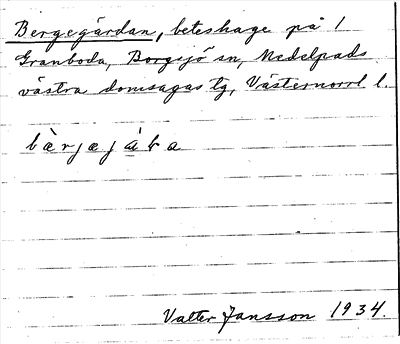 Bergegårdan, beteshage på 1
Granboda, Borgsjö sn, Medelpads
västra domsagas tg, Västernorrl l.
Valter Jansson 1934.